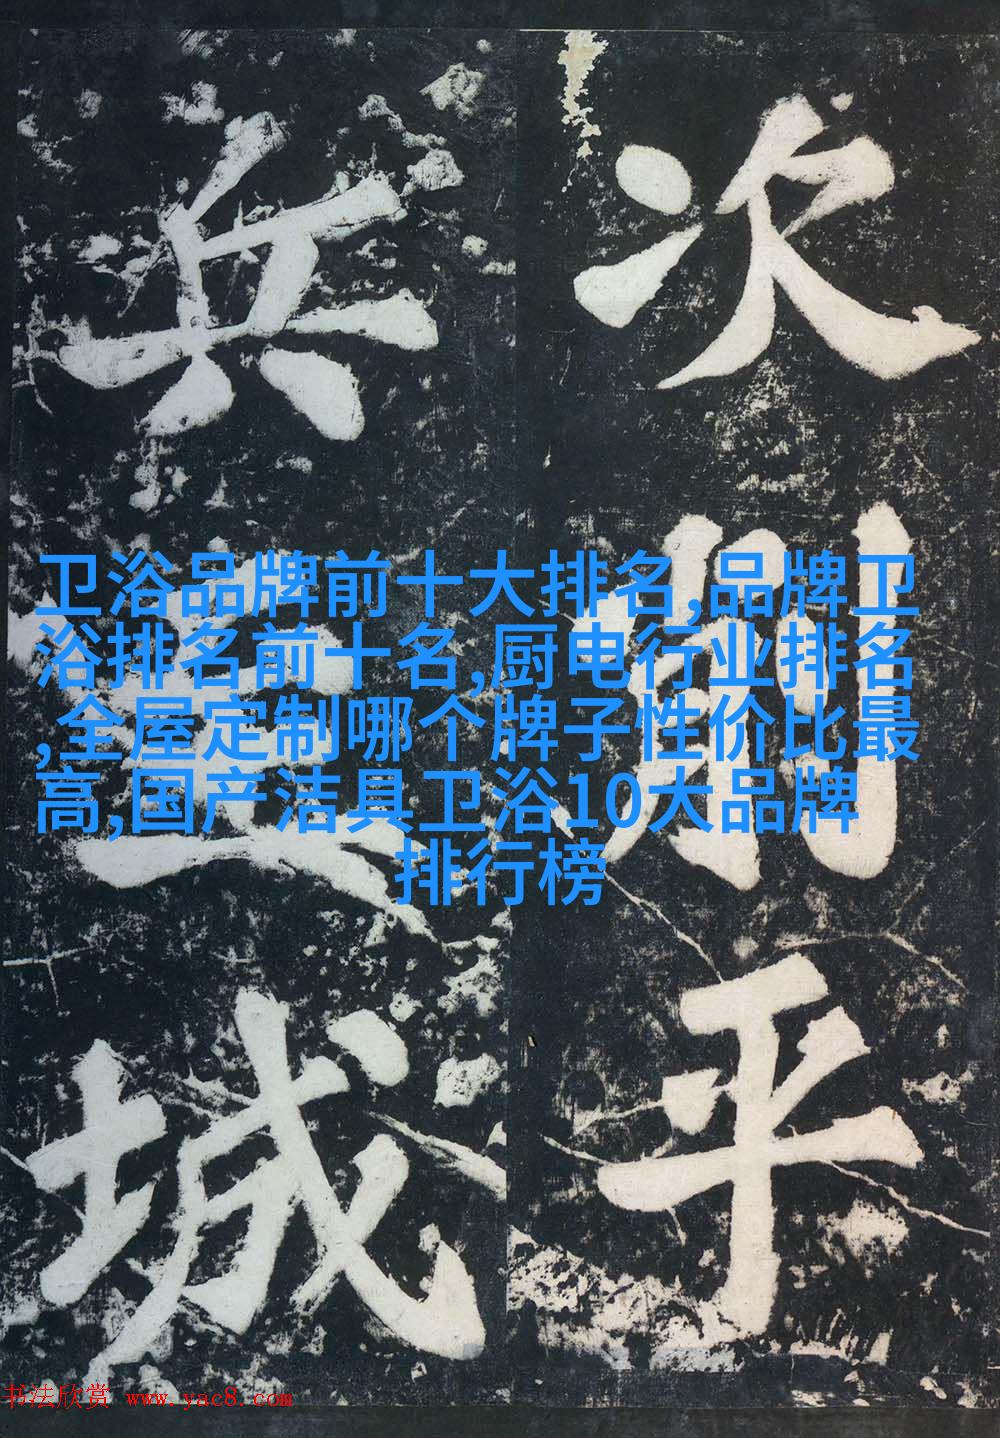 次則平
兵城
卫浴品牌前十大排名,品牌卫
浴排名前十名,厨电行业排名
,全屋定制哪个牌子性价比最
高,国产洁具卫浴10大品牌
排行榜
书法欣赏 www.yac8.com